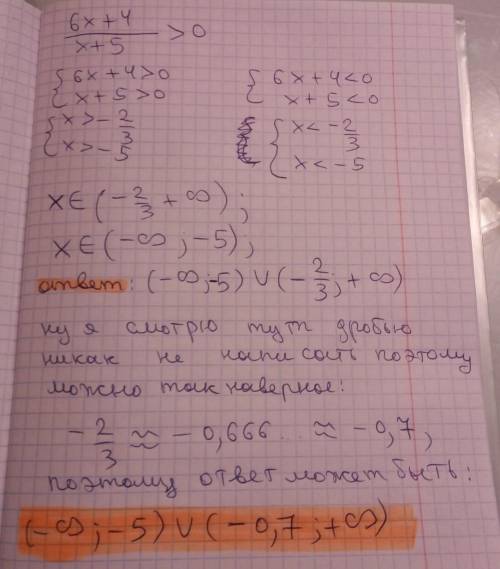 6x+4/x+5 > 0
{ 6x+4>0   { 6x+4<0
{ x+5>0   { x+5<0
{ x>-2/3   { x<-2/3
{ x>-5   { x<-5
x∈(-2/3 +∞);
x∈(-∞;-5);
ответ: (-∞;-5)∪(-2/3;+∞)
ну я смотрю тут дробью
никак не написать поэтому
можно так наверное:
-2/3 ≈ -0,666.. ≈ -0,7,
поэтому ответ может быть:
(-∞;-5)∪(-0,7;+∞)